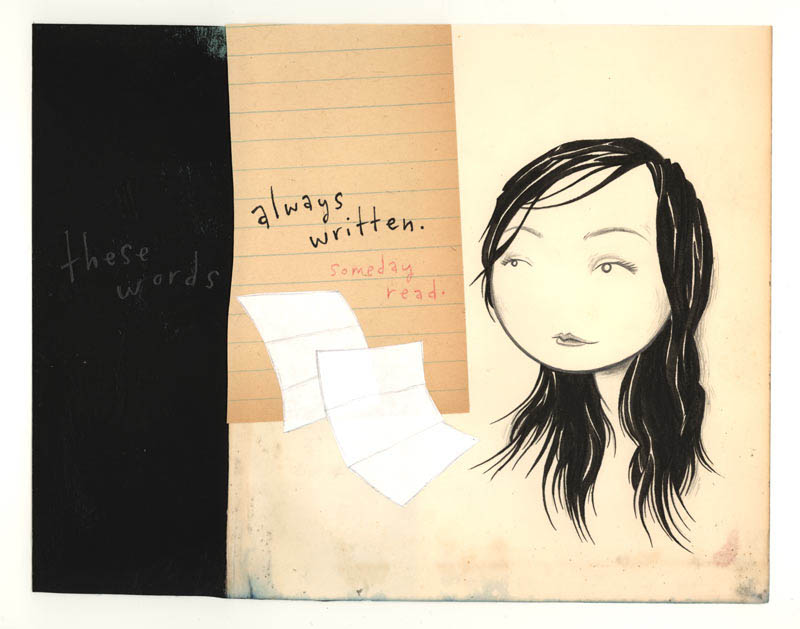 these
words
always
written.
someday
read.